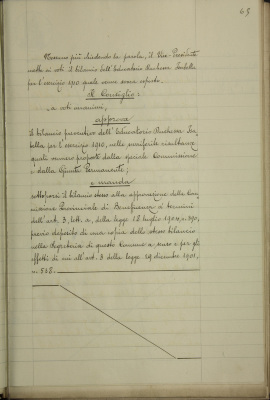 65
Nessuno più chiedendo la parola, il Vice-Presidente
mette ai voti il bilancio dell'Educatorio Duchessa Isabella
per l'esercizio 1910 quale venne sovra esposto.
Il Consiglio:
a voti unanimi,
approva
Il bilancio preventivo dell'Educatorio Duchessa Isa-
bella per l'esercizio 1910, nelle periferiche risultanze
quali vennero proposti dalla speciale Commissione
e dalla Giunta Permanente;
e manda
Sottoporsi il bilancio stesso alla approvazione della Com-
missione Provinciale di Beneficenza a' termini
dell'art. 3, lett. a, della legge 18 luglio 1904, n. 390,
previo deposito di una copia dello stesso bilancio
nella Segreteria di questo Comune a senso e per gli
effetti di cui all'art. 3 della legge 19 dicembre 1901,
n. 528.